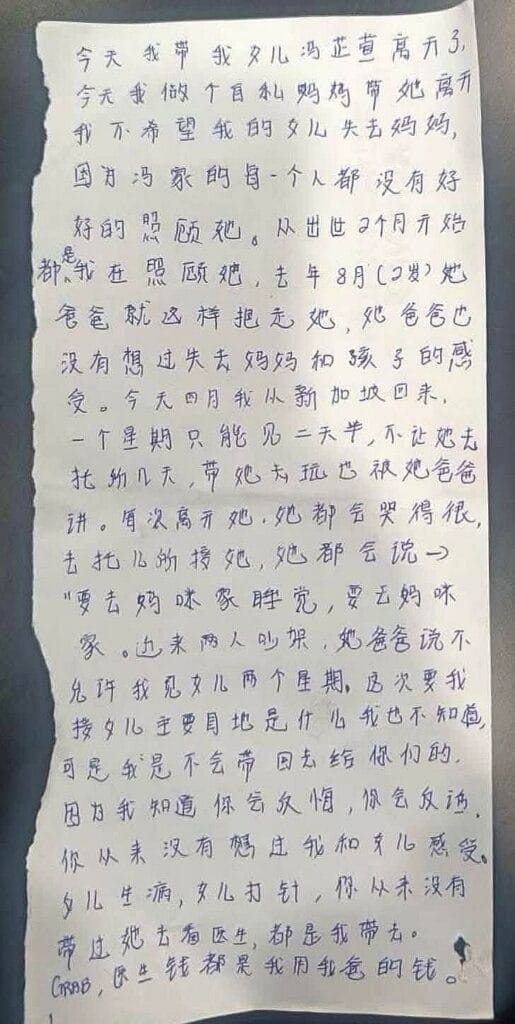 今天我带我女儿冯芷萱离开了,
今天我做个自私妈妈带她离开
我不希望我的女儿失去妈妈,
因为冯家的每一个人都没有好
好的照顾她。从出世2个月开始
都是我在照顾她,去年8月(2岁)她
爸爸就这样把走她,她爸爸也
没有想过失去妈妈和孩子的感
受。今天四月我从新加坡回来,
一个星期只能见二天半,不让她去
托幼几天,带她去玩也被她爸爸
讲。每次离开她,她都会哭得很,
去托儿所接她,她都会说→
"要去妈咪家睡觉,要去妈咪
家。近来两人吵架,她爸爸说不
允许我见女儿两个星期。这次要我
接女儿主要目地是什么我也不知道,
可是我是不会带回去给你们的,
因为我知道你会反悔,你会反话,
你从来没有想过我和女儿感受。
女儿生病,女儿打针,你从来没有
带过她去看医生,都是我带去。
GRAB,医生钱都是我用我爸的钱。